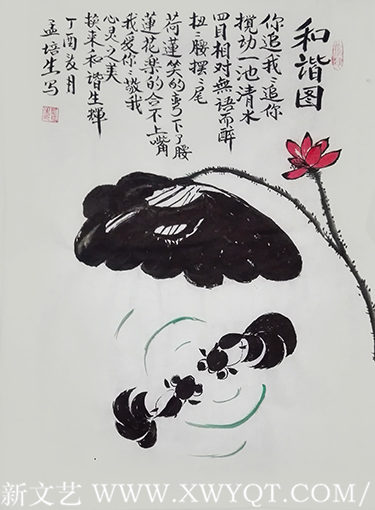 和谐图
你追我, 我追你
搅动一池清水
四目相对無语而醉
扭扭腰摆摆尾
荷蓮笑的弯下了腰
蓮花乐的合不上嘴
我爱你, 敬我
心灵之美
换来和谐生輝
丁酉年月
孟培生写
新文艺 WWW.XWYQT.COM/